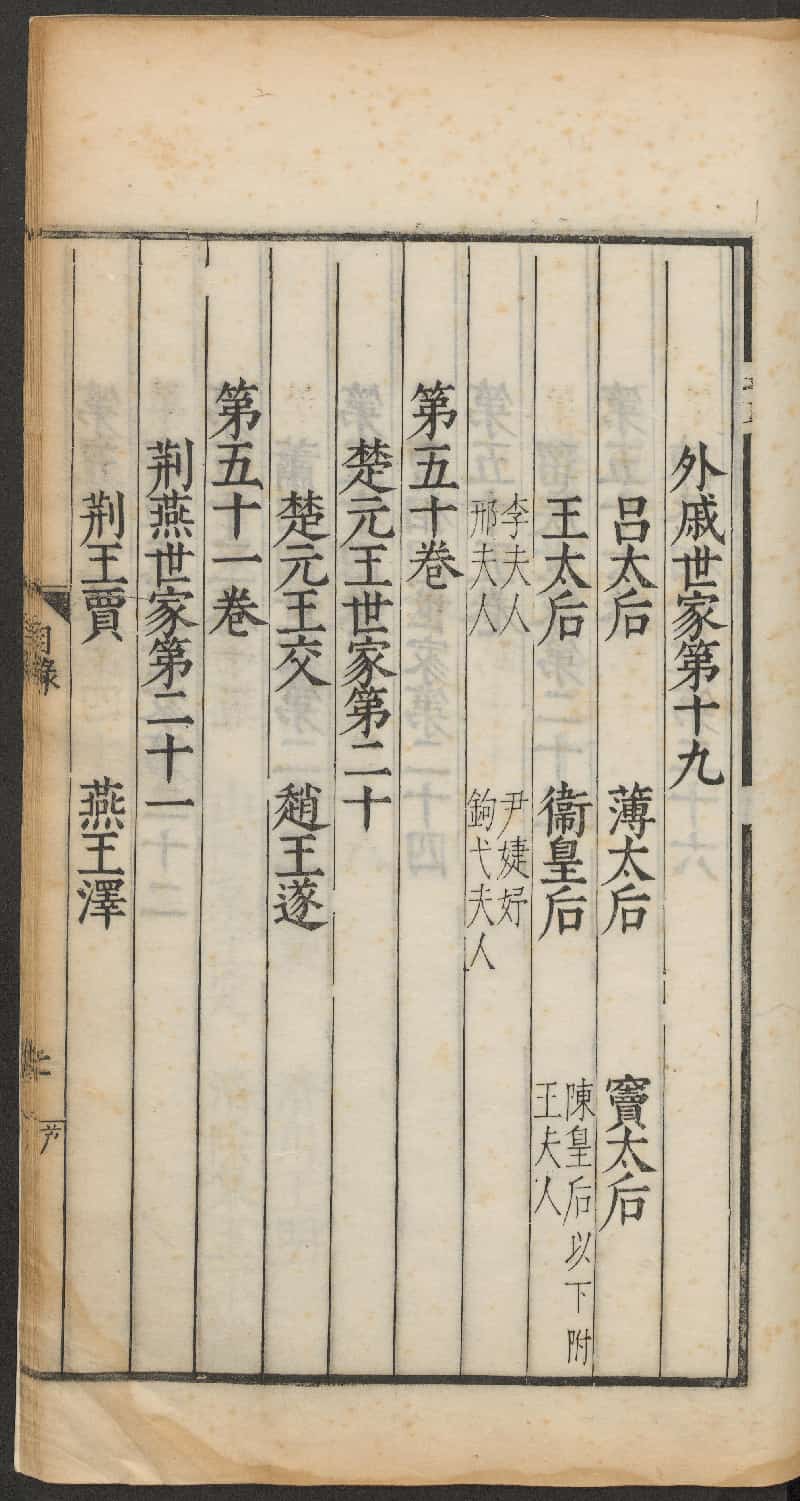 外戚世家第十九
呂太后　薄太后　竇太后
王太后　衞皇后　陳皇后以下附
王夫人
李夫人　尹婕妤
邢夫人　鉤弋夫人
第五十卷
楚元王世家第二十
楚元王交　趙王遂
第五十一卷
荆燕世家第二十一
荆王賈　燕王澤
目錄